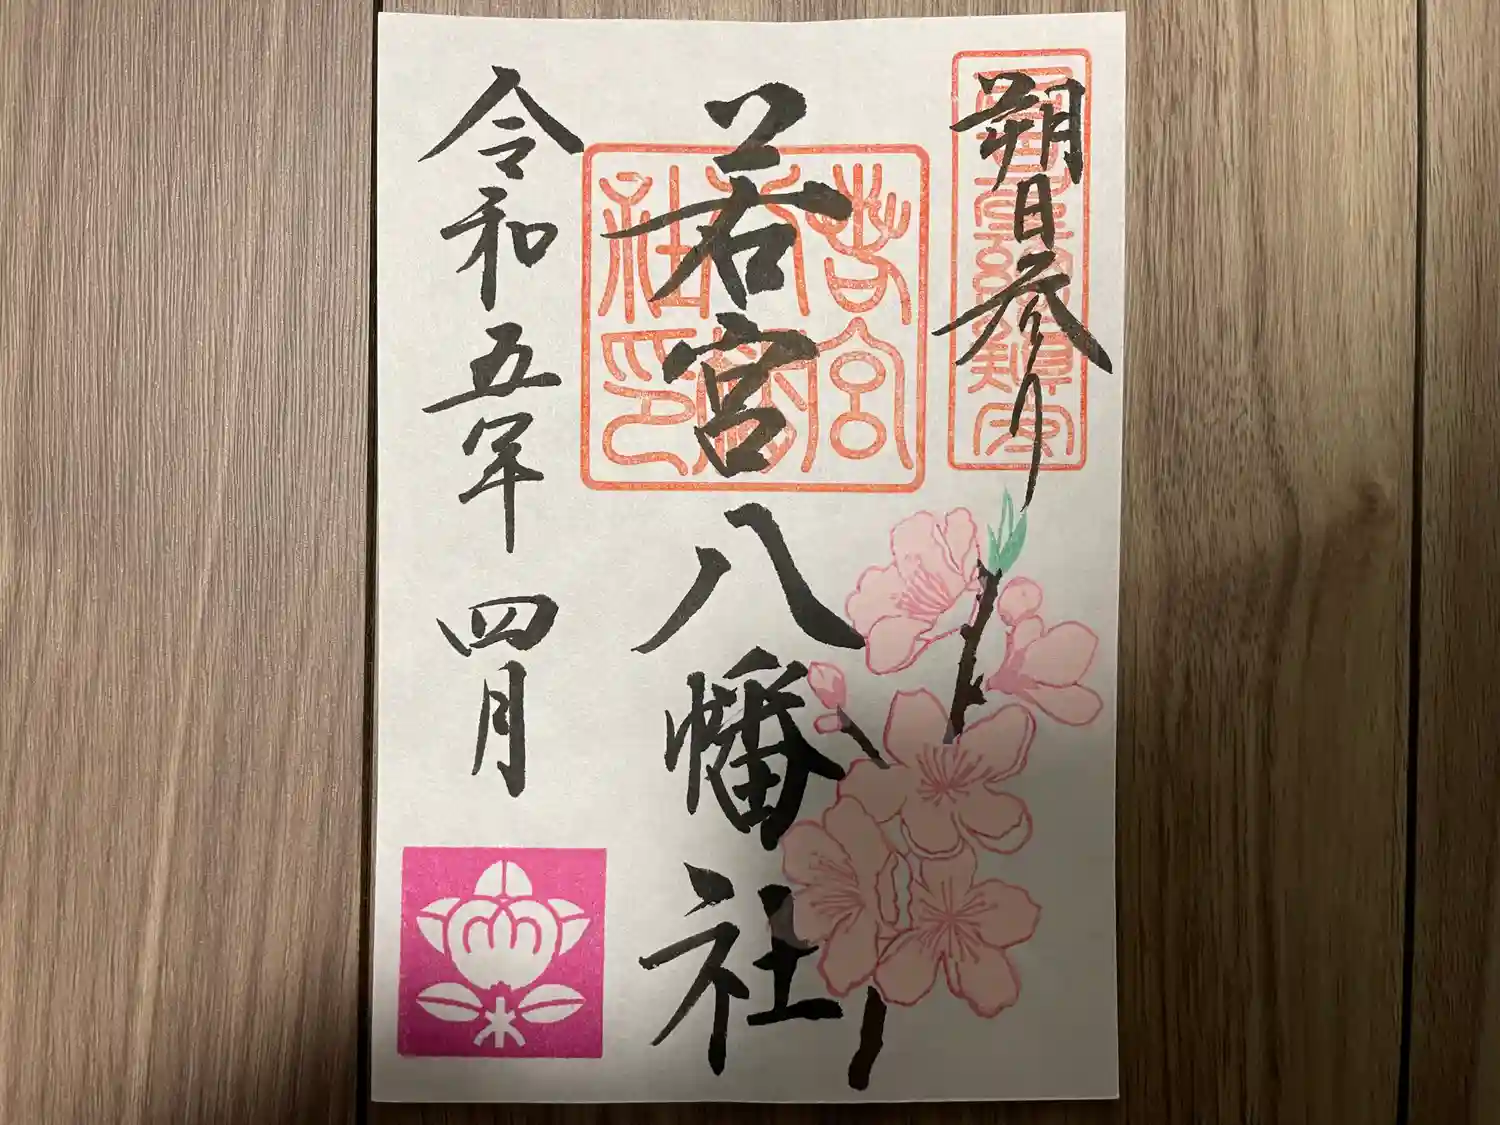 朔日参り
若宮八幡社
若宮八幡社印
令和五年四月